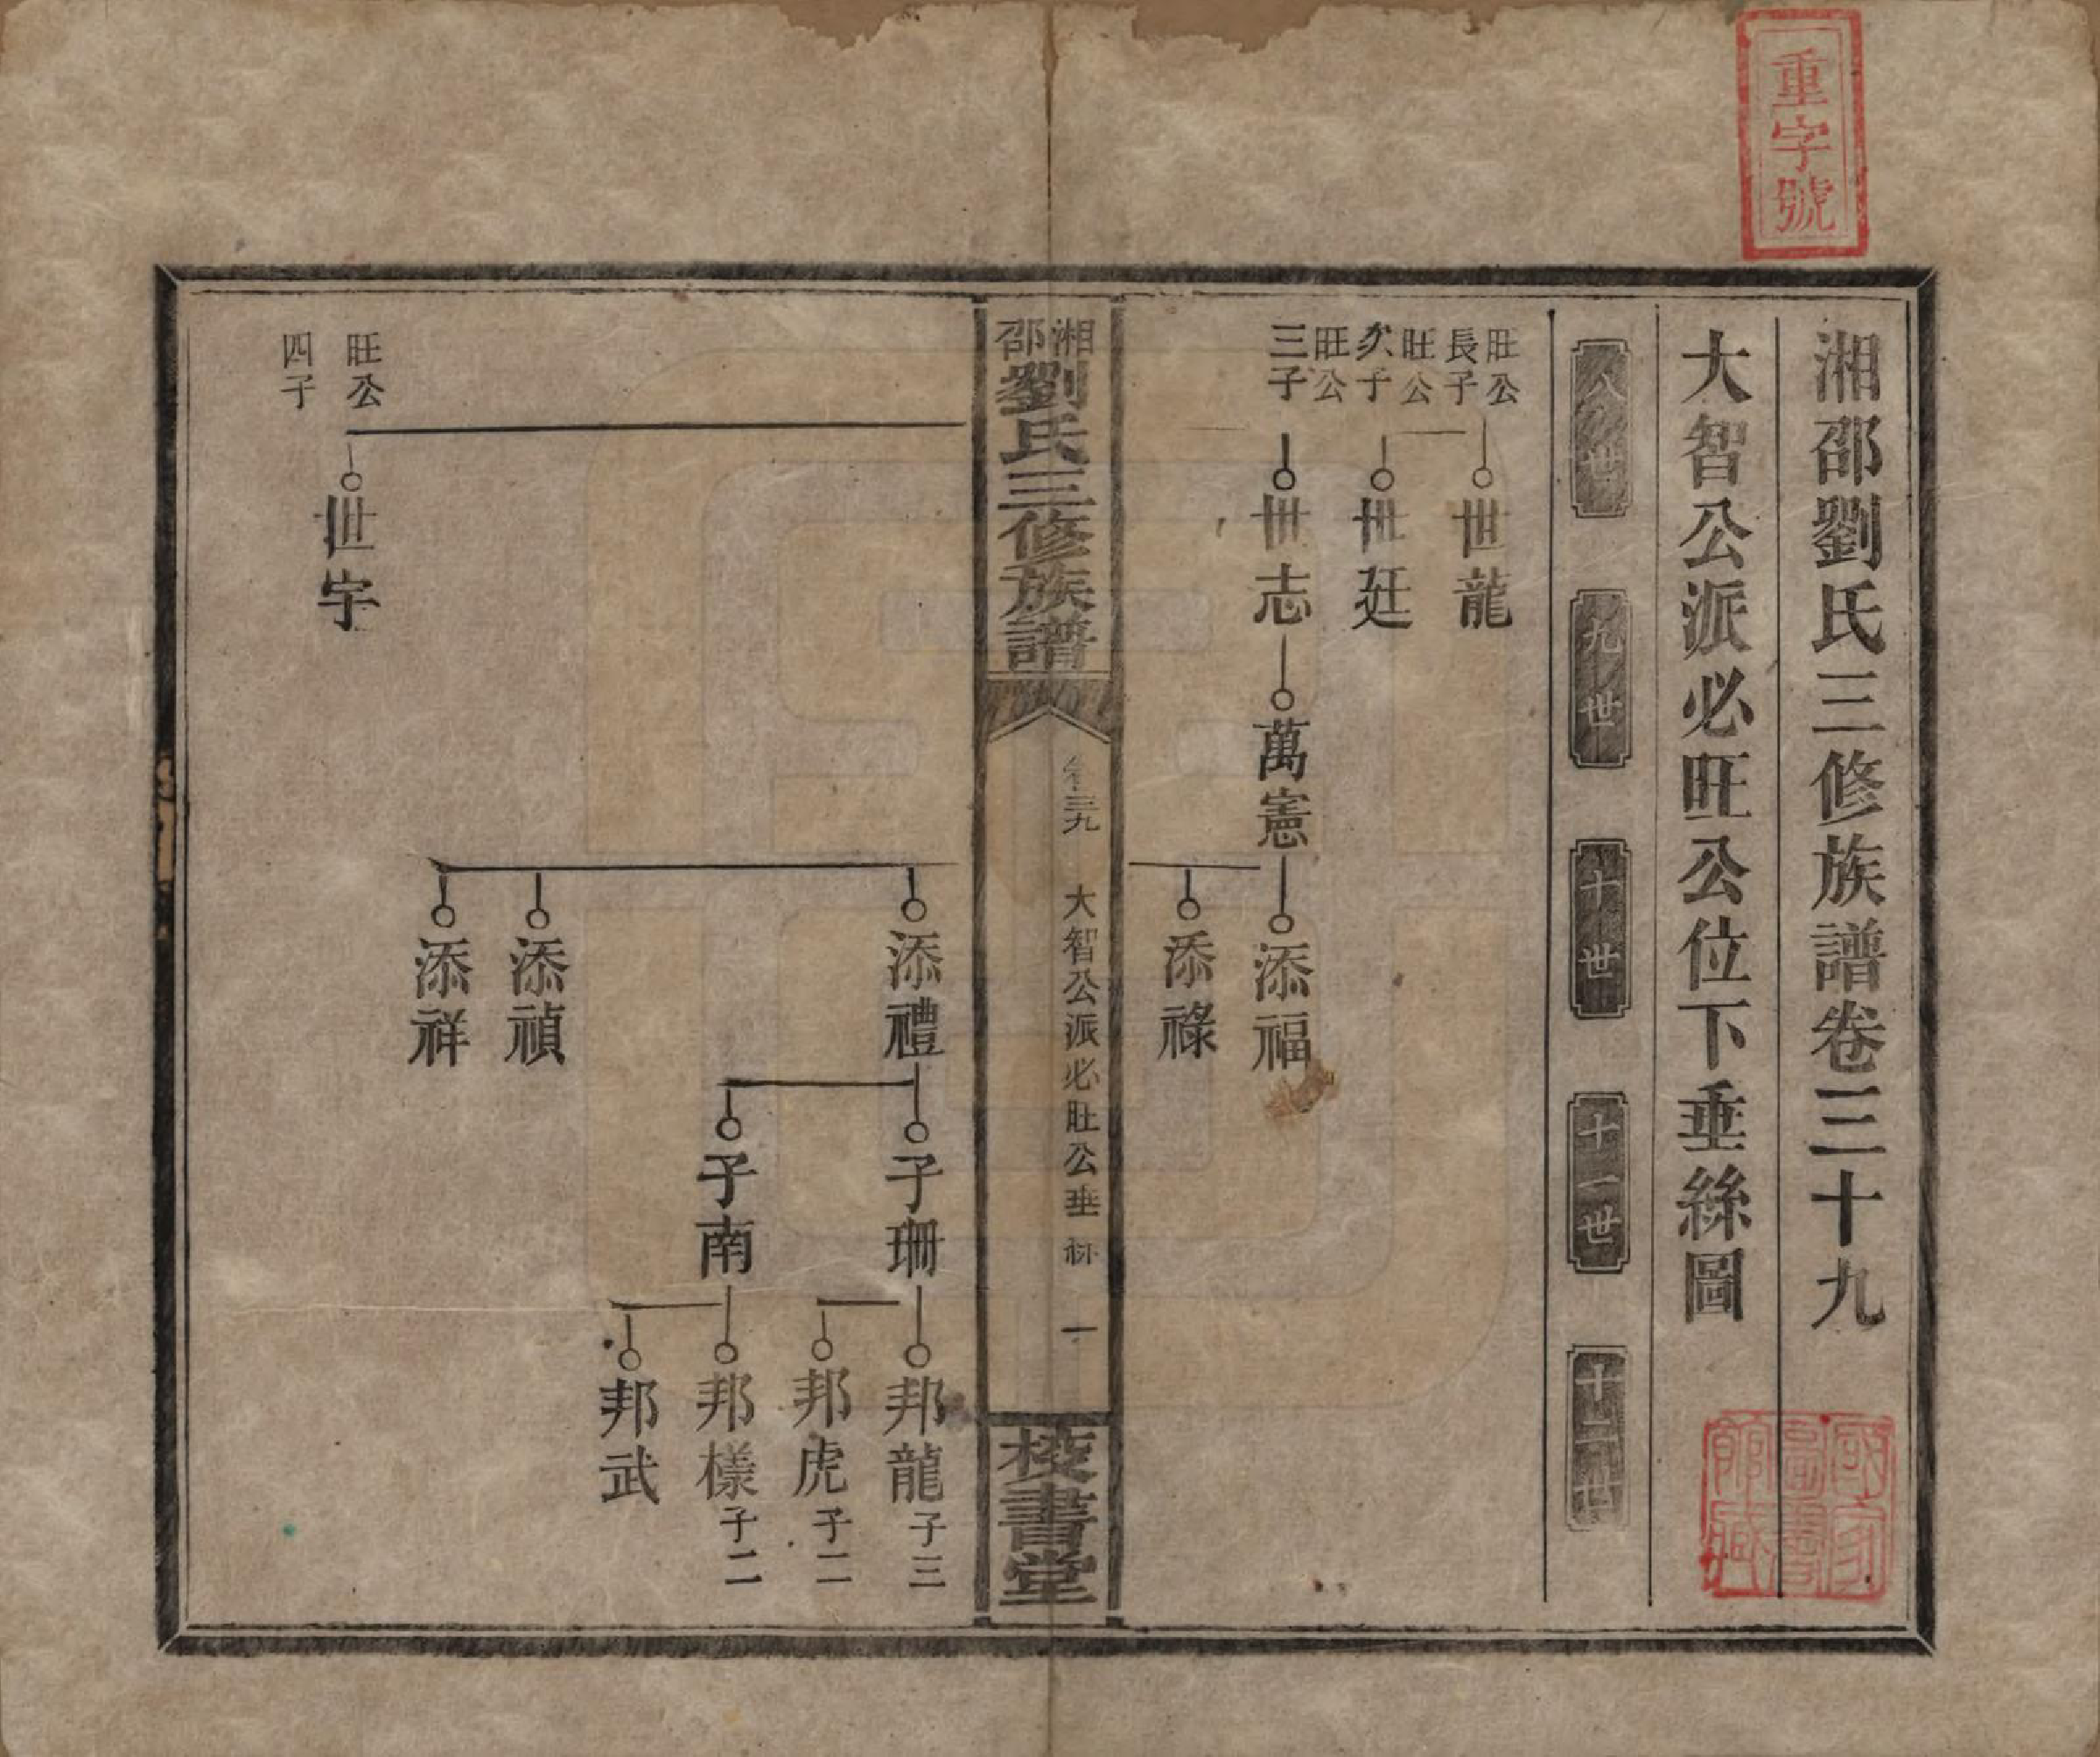 重字號
湘邵劉氏三修族譜卷三十九
大智公派必旺公位下垂絲圖
八世
九世
十世
十一世
十二世
旺公
長子
世龍
旺公
次子
世廷
旺公
三子
世志
萬憲
添福
添祿
湘邵
劉氏三修族譜
卷三九
大智公派必旺公垂絲
一
校書堂
添禮
子珊
邦龍
子三
邦虎
子二
子南
邦樣
子二
邦武
添禎
添祥
旺公
四子
世宇
國家圖書館藏